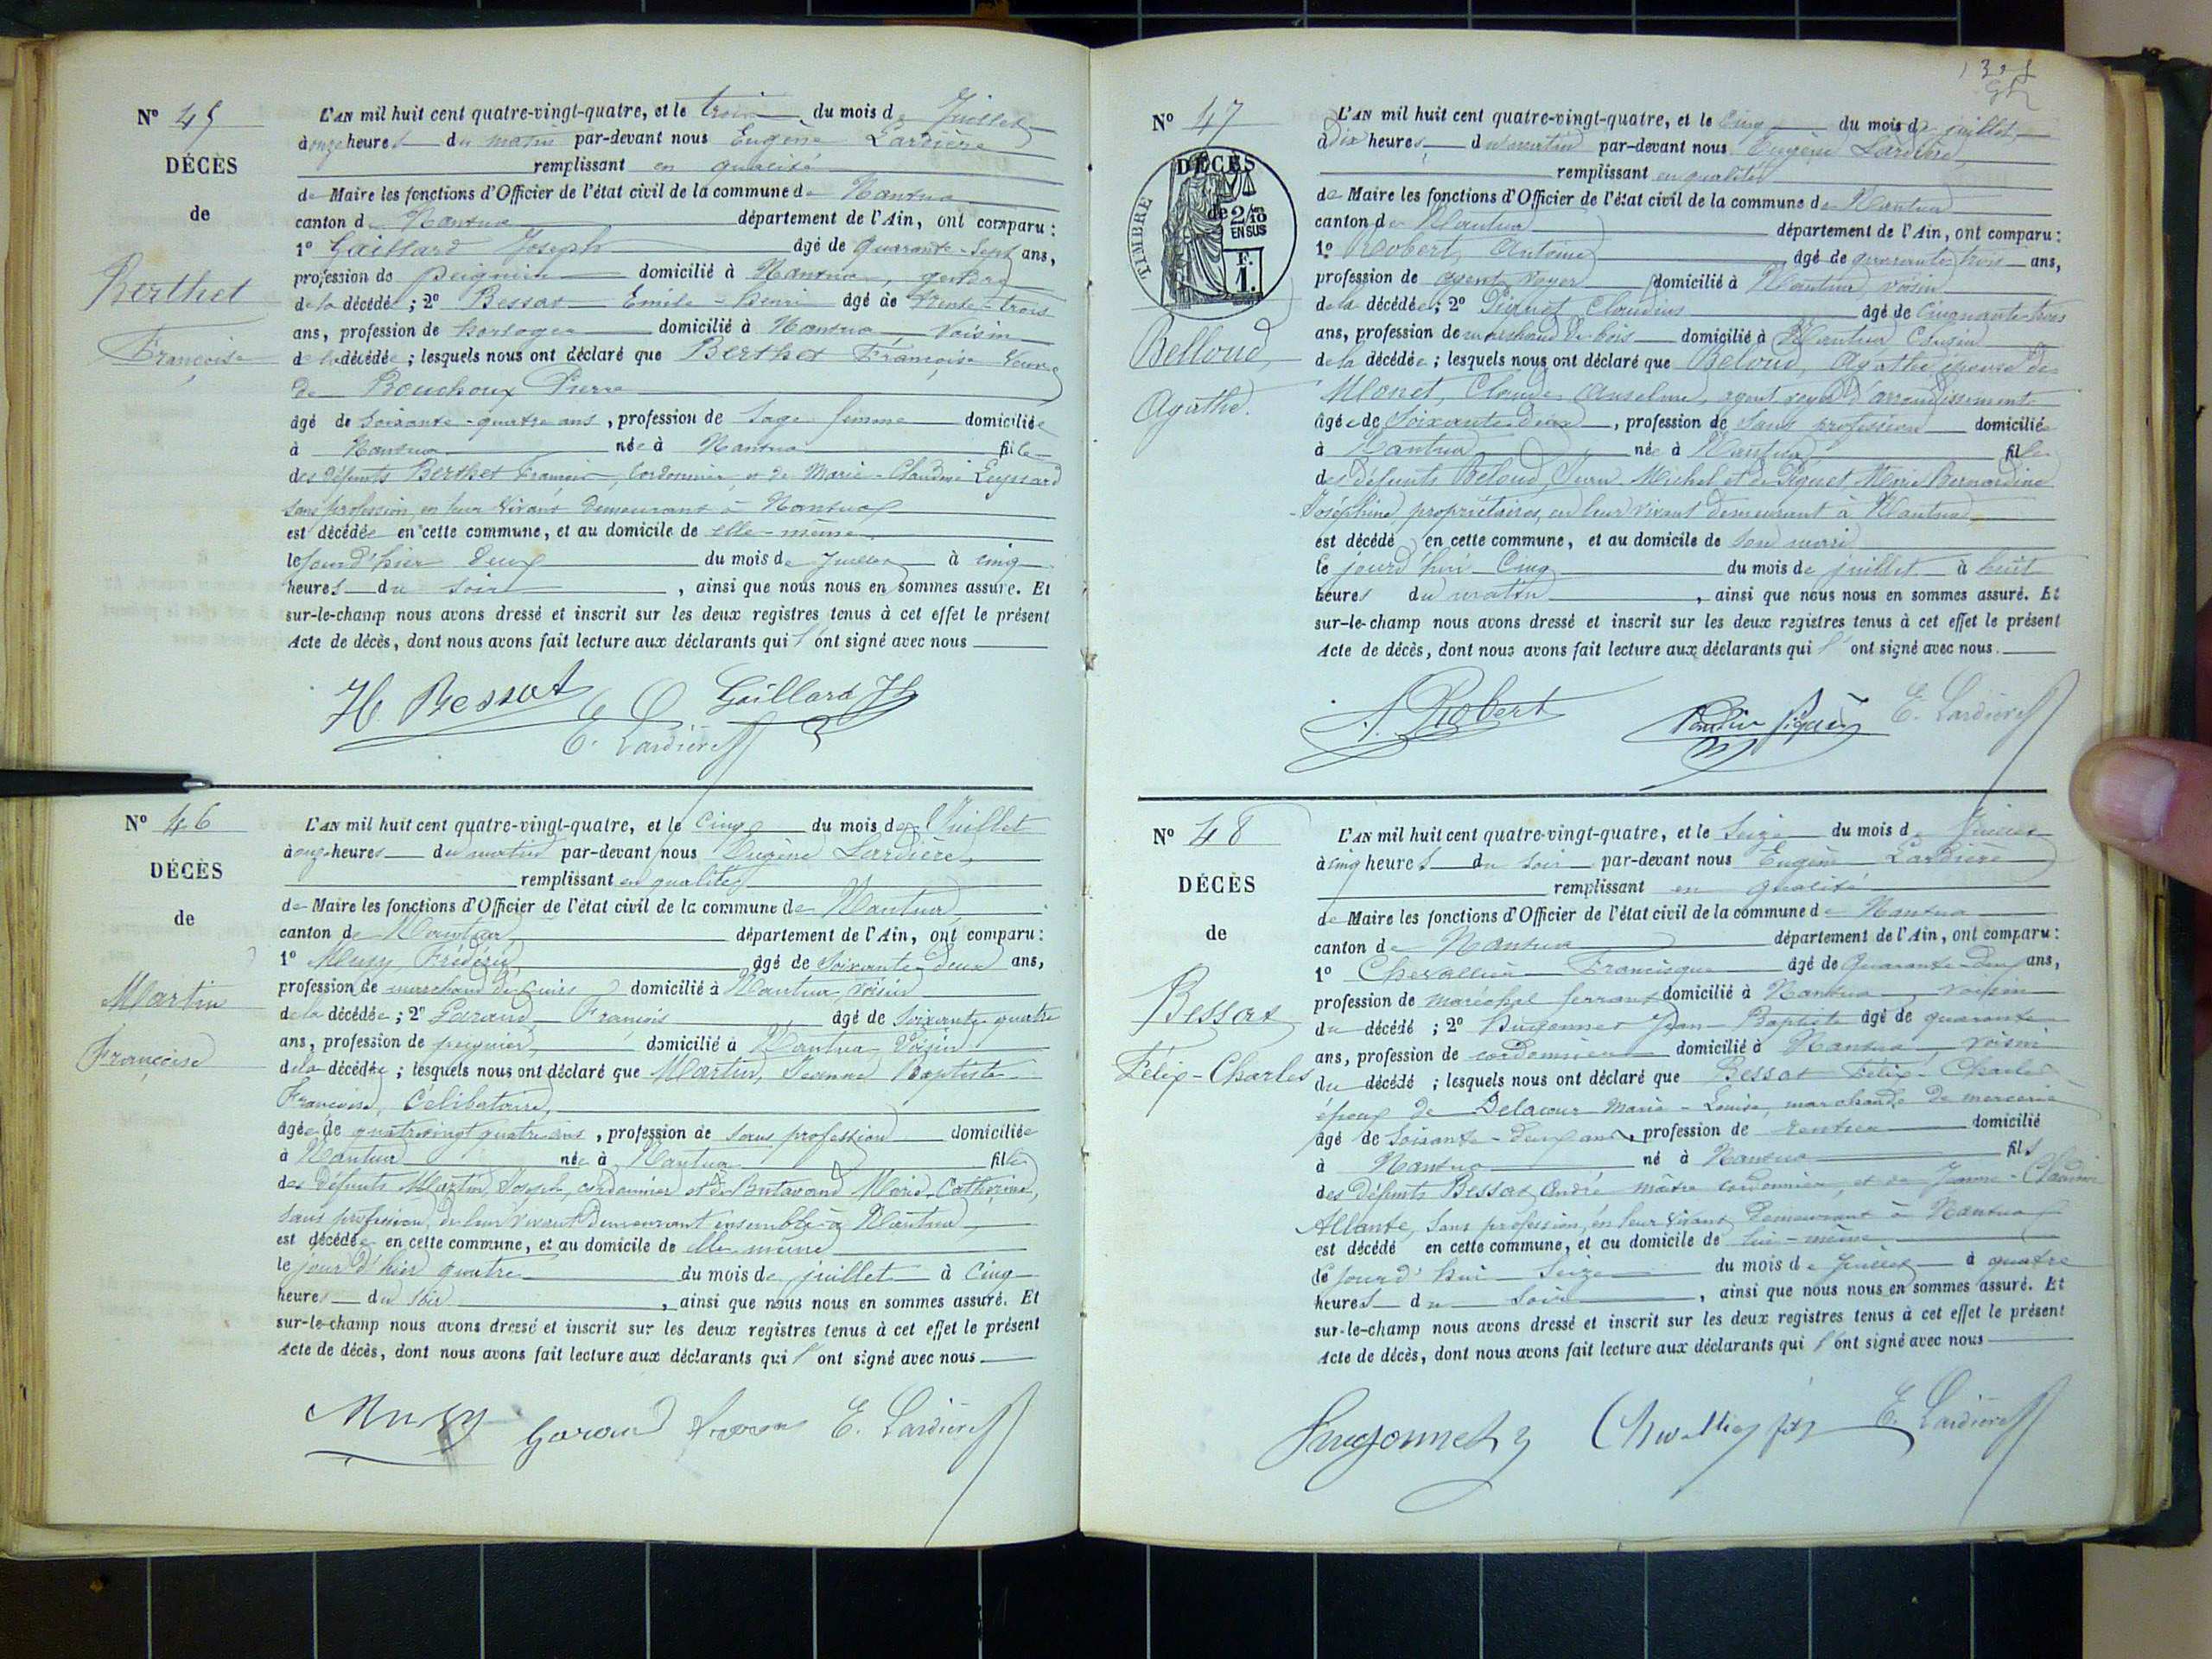 Nº 45
DÉCÈS
de
Berthet
Françoise
L'AN mil huit cent quatre-vingt-quatre, et le trois du mois de Juillet
à onze heures du matin par-devant nous Eugène Lardière
remplissant en qualité
de Maire les fonctions d'Officier de l'état civil de la commune de Nantua
canton de Nantua département de l'Ain, ont comparu :
1º Gaillard Joseph âgé de quarante-sept ans,
profession de peignier domicilié à Nantua, gendre
de la décédée ; 2º Bessat Emile-Henri âgé de trente-trois
ans, profession de horloger domicilié à Nantua, voisin
de la décédée ; lesquels nous ont déclaré que Berthet Françoise veuve
de Bouchoux Pierre
âgé de soixante-quatre ans, profession de sage femme domiciliée
à Nantua née à Nantua fille
des défunts Berthet François, cordonnier, et de Marie-Claudine Leyssard
sans profession, en leur vivant demeurant à Nantua
est décédée en cette commune, et au domicile de elle-même
le jour d'hier deux du mois de Juillet à cinq
heures du soir, ainsi que nous nous en sommes assuré. Et
sur-le-champ nous avons dressé et inscrit sur les deux registres tenus à cet effet le présent
Acte de décès, dont nous avons fait lecture aux déclarants qui l'ont signé avec nous
H. Bessat Gaillard Jh
E. Lardière
Nº 46
DÉCÈS
de
Martin
Françoise
L'AN mil huit cent quatre-vingt-quatre, et le cinq du mois de Juillet
à onze heures du matin par-devant nous Eugène Lardière
remplissant en qualité
de Maire les fonctions d'Officier de l'état civil de la commune de Nantua
canton de Nantua département de l'Ain, ont comparu :
1º Musy Frédéric âgé de soixante-deux ans,
profession de marchand de cuirs domicilié à Nantua, voisin
de la décédée ; 2º Garaud François âgé de soixante quatre
ans, profession de peignier domicilié à Nantua, voisin
de la décédée ; lesquels nous ont déclaré que Martin, Jeanne Baptiste
Françoise, Célibataire,
âgée de quatrevingt quatre ans, profession de sans profession domiciliée
à Nantua née à Nantua fille
des défunts Martin Joseph, cordonnier et de Butavand Marie-Catherine,
sans profession, de leur vivant demeurant ensemble à Nantua
est décédée en cette commune, et au domicile de elle même
le jour d'hier quatre du mois de juillet à cinq
heures du soir, ainsi que nous nous en sommes assuré. Et
sur-le-champ nous avons dressé et inscrit sur les deux registres tenus à cet effet le présent
Acte de décès, dont nous avons fait lecture aux déclarants qui l'ont signé avec nous
Musy Garaud E. Lardière
Nº 47
DÉCÈS
de
TIMBRE
2/10 EN SUS
F. 1.
Belloud
Agathe.
L'AN mil huit cent quatre-vingt-quatre, et le cinq du mois de juillet
à dix heures du matin par-devant nous Eugène Lardière
remplissant en qualité
de Maire les fonctions d'Officier de l'état civil de la commune de Nantua
canton de Nantua département de l'Ain, ont comparu :
1º Robert, Antoine âgé de quarante trois ans,
profession de agent voyer domicilié à Nantua voisin
de la décédée ; 2º Piquet Claudius âgé de cinquante-trois
ans, profession de marchand de bois domicilié à Nantua Cousin
de la décédée ; lesquels nous ont déclaré que Beloud, Agathe épouse de
Monet, Claude Anselme, agent voyer d'arrondissement
âgée de soixante deux, profession de sans profession domiciliée
à Nantua née à Nantua fille
des défunts Beloud, Jean Michel et de Piquet, Marie Bernardine
Joséphine, propriétaires, en leur vivant demeurant à Nantua
est décédé en cette commune, et au domicile de son mari
le jourd'hui Cinq du mois de juillet à huit
heures du matin, ainsi que nous nous en sommes assuré. Et
sur-le-champ nous avons dressé et inscrit sur les deux registres tenus à cet effet le présent
Acte de décès, dont nous avons fait lecture aux déclarants qui l'ont signé avec nous.
A. Robert E. Lardière
Nº 48
DÉCÈS
de
Bessat
Félix-Charles
L'AN mil huit cent quatre-vingt-quatre, et le seize du mois de Juillet
à cinq heures du soir par-devant nous Eugène Lardière
remplissant en qualité
de Maire les fonctions d'Officier de l'état civil de la commune de Nantua
canton de Nantua département de l'Ain, ont comparu :
1º Chevallier Francisque âgé de quarante-deux ans,
profession de maréchal ferrant domicilié à Nantua voisin
du décédé ; 2º Hugonnet Jean-Baptiste âgé de quarante
ans, profession de cordonnier domicilié à Nantua, voisin
du décédé ; lesquels nous ont déclaré que Bessat Félix-Charles
époux de Delacour Marie-Louise, marchande de mercerie
âgé de soixante-deux ans, profession de rentier domicilié
à Nantua né à Nantua fils
des défunts Bessat André maître cordonnier, et de Jeanne-Claudine
Allante, sans profession, en leur vivant demeurant à Nantua
est décédé en cette commune, et au domicile de lui-même
le jourd'hui seize du mois de Juillet à quatre
heures du soir, ainsi que nous nous en sommes assuré. Et
sur-le-champ nous avons dressé et inscrit sur les deux registres tenus à cet effet le présent
Acte de décès, dont nous avons fait lecture aux déclarants qui l'ont signé avec nous
Hugonnet E. Lardière